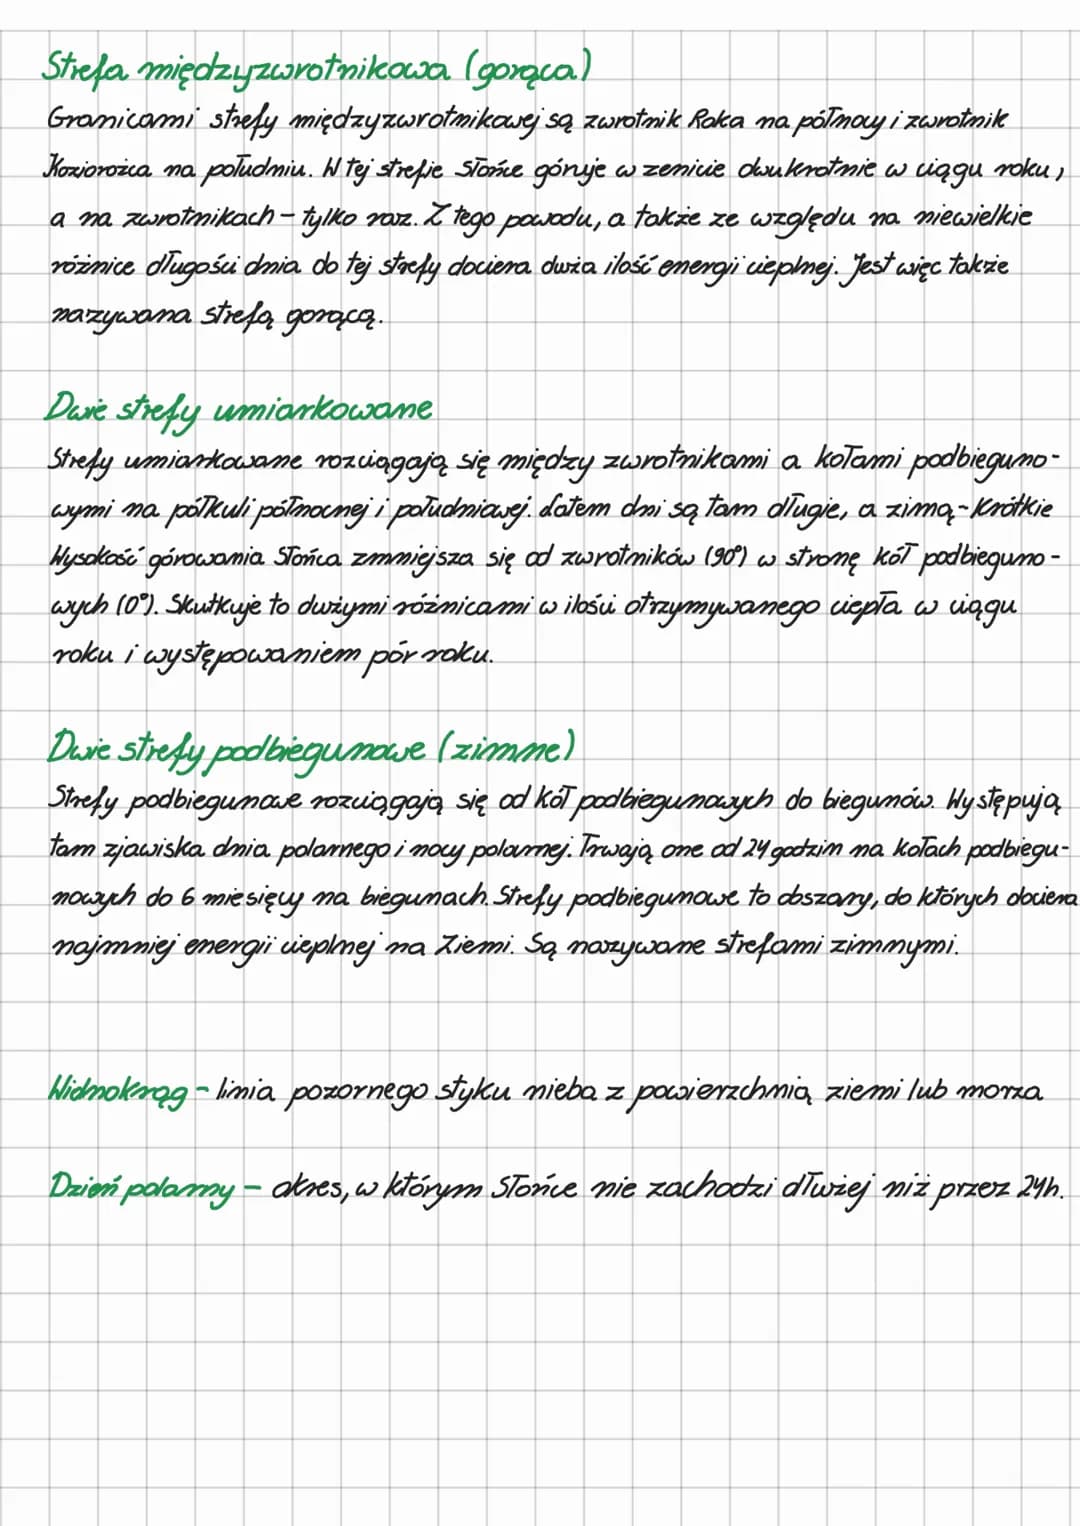 Strefa międzyzwrotnikowa (gorąca)
Granicami strefy międzyzwrotnikowej są zwrotnik Raka na północy i zwrotnik
Koziorożca na południu. W tej strefie Słońce góruje w zenicie dwukrotnie w ciągu roku,
a na zwrotnikach – tylko raz. Z tego powodu, a także ze względu na niewielkie
różnice długości dnia do tej strefy dociera duża ilość energii cieplnej. Jest więc także
nazywana strefą gorącą.
Dwie strefy umiarkowane
Strefy umiarkowane rozciągają się między zwrotnikami a kołami podbieguno-
wymi na półkuli północnej i południowej. Latem dni są tam długie, a zimą - krótkie
Wysokość górowania Słońca zmniejsza się od zwrotników (90°) w stronę kół podbieguno-
wych (0°). Skutkuje to dużymi różnicami w ilości otrzymywanego ciepła w ciągu
roku i występowaniem pór roku.
Dwie strefy podbiegunowe (zimne)
Strefy podbiegunowe rozciągają się od kół podbiegunowych do biegunów. Występują
tam zjawiska dnia polarnego i nocy polarnej. Trwają one od 24 godzin na kołach podbiegu-
nowych do 6 miesięcy na biegunach. Strefy podbiegunowe to obszary, do których dociera
najmniej energii cieplnej na Ziemi. Są nazywane strefami zimnymi.
Widnokrąg - linia pozornego styku nieba z powierzchnią ziemi lub morza
Dzień polarny – okres, w którym Słońce nie zachodzi dłużej niż przez 24h.